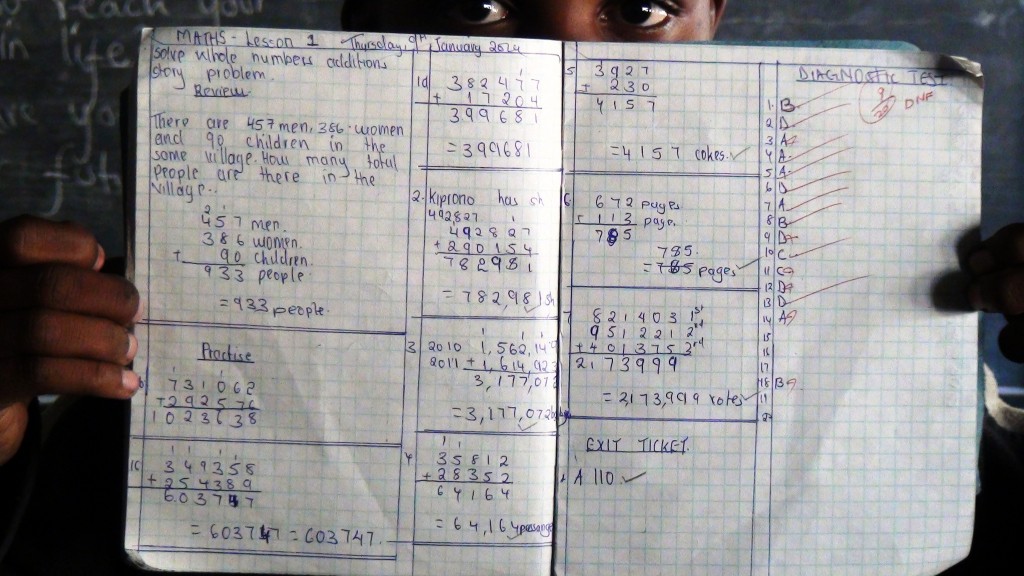 reach your
in life
MATHS - Lesson 1 Thursday, 9th January 2014
solve whole numbers additions
story problem.
Review
There are 457 men, 386 women
and 90 children in the
same village. How many total
people are there in the
village.
2 1
457 men.
386 women.
+ 90 children.
933 people
= 933 people.
Practise
1 1
b 731062
+292576
1023638
1 1 1 1
1c 349358
+ 254389
603747
= 603747 = 603747.
1
1d 382477
+ 17204
399681
= 399681
2. Kiprono has sh
492827 1
492827
+290154
782981
= 782981 sh
1 1 1
3 2010 1,562,149
2011 + 1,614,923
3,177,072
= 3,177,072
1 1
4 35812
+ 28352
64164
= 64,164
5 3927
+ 230
4157
= 4157 cokes.
6 672 pages
113 page.
785
785.
= 785 pages
7 821403 1st
951221 2nd
+401375 3rd
2173999
= 2,173,999 votes
EXIT TICKET.
A 110
DIAGNOSTIC TEST
9/20 DNF
1. B
2 D
3 A
4 A
5 A
6 D
7 A
8 B
9 D
10 C
11 C
12 D
13 D
14 A
15
16
17
18 B
19
20